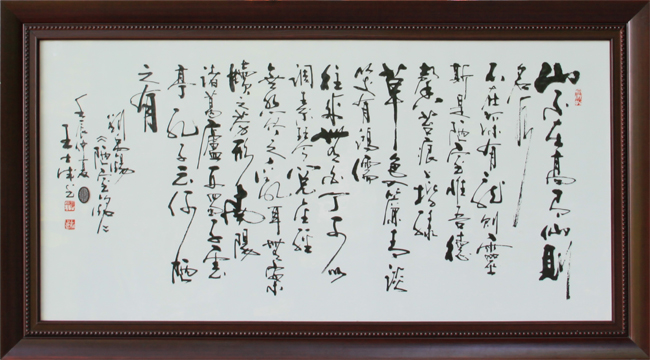 山不在高有仙則
名水
不在深有龍則靈
斯是陋室惟吾德
馨苔痕上階綠
草色入簾青談
笑有鴻儒
往來無白丁可以
調素琴閱金經
無絲竹之亂耳無案
牘之勞形南陽
諸葛廬西蜀子雲
亭孔子云何陋
之有
劉禹錫
《陋室銘》
壬辰仲夏